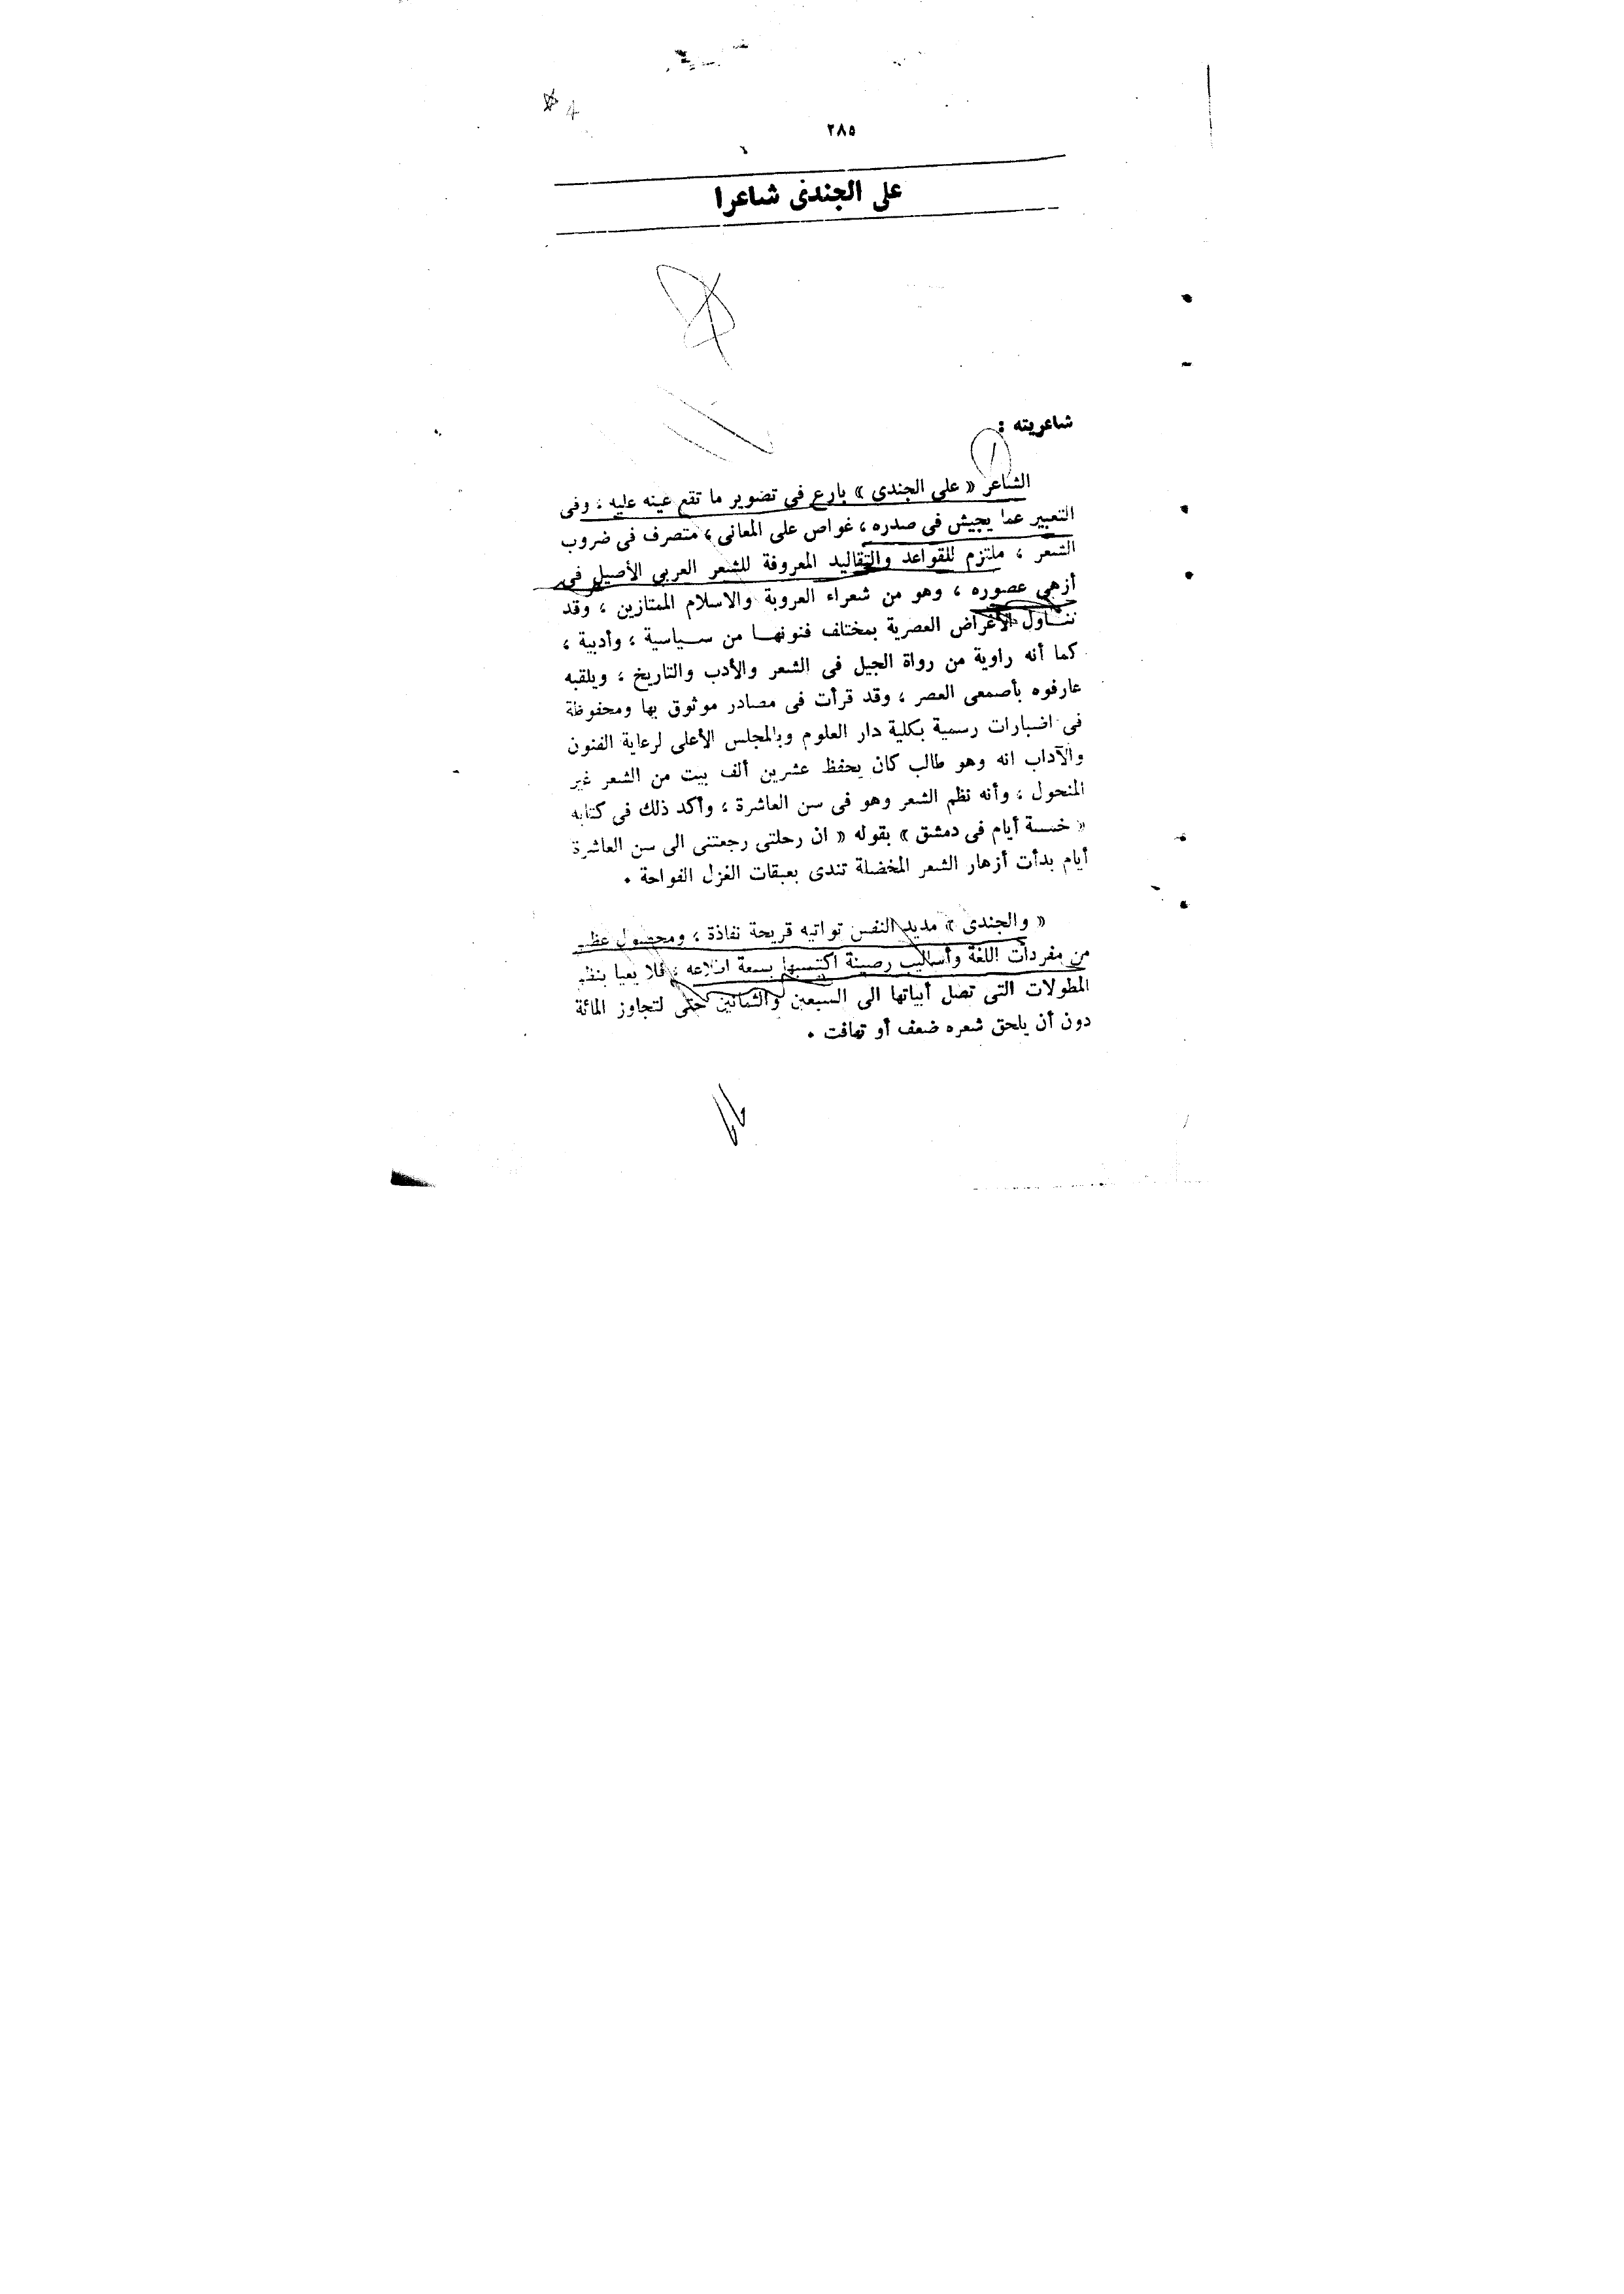 ٢٨٥
على الجندى شاعرا
شاعريته :
الشاعر « على الجندى » بارع فى تصوير ما تقع عينه عليه ، وفى
التعبير عما يجيش فى صدره ، غواص على المعانى ، متصرف فى ضروب
الشعر ، ملتزم للقواعد والتقاليد المعروفة للشعر العربى الأصيل فى
أزهى عصوره ، وهو من شعراء العروبة والاسلام الممتازين ، وقد
تناول الأغراض العصرية بمختلف فنونها من سياسية ، وأدبية ،
كما أنه راوية من رواة الجيل فى الشعر والأدب والتاريخ ، ويلقبه
عارفوه بأصمعى العصر ، وقد قرأت فى مصادر موثوق بها ومحفوظة
فى اضبارات رسمية بكلية دار العلوم وبالمجلس الأعلى لرعاية الفنون
والآداب انه وهو طالب كان يحفظ عشرين ألف بيت من الشعر غير
المنحول ، وأنه نظم الشعر وهو فى سن العاشرة ، وأكد ذلك فى كتابه
« خمسة أيام فى دمشق » بقوله « ان رحلتى رجعتنى الى سن العاشرة
أيام بدأت أزهار الشعر المخضلة تندى بعبقات الغزل الفواحة .
« والجندى » مديد النفس تواتيه قريحة نفاذة ، ومحصول
من مفردات اللغة وأساليب رصينة اكتسبها بسعة اطلاعه ، فلا يعيا
المطولات التى تصل أبياتها الى السبعين والثمانين حتى لتجاوز المائة
دون أن يلحق شعره ضعف أو تهافت .